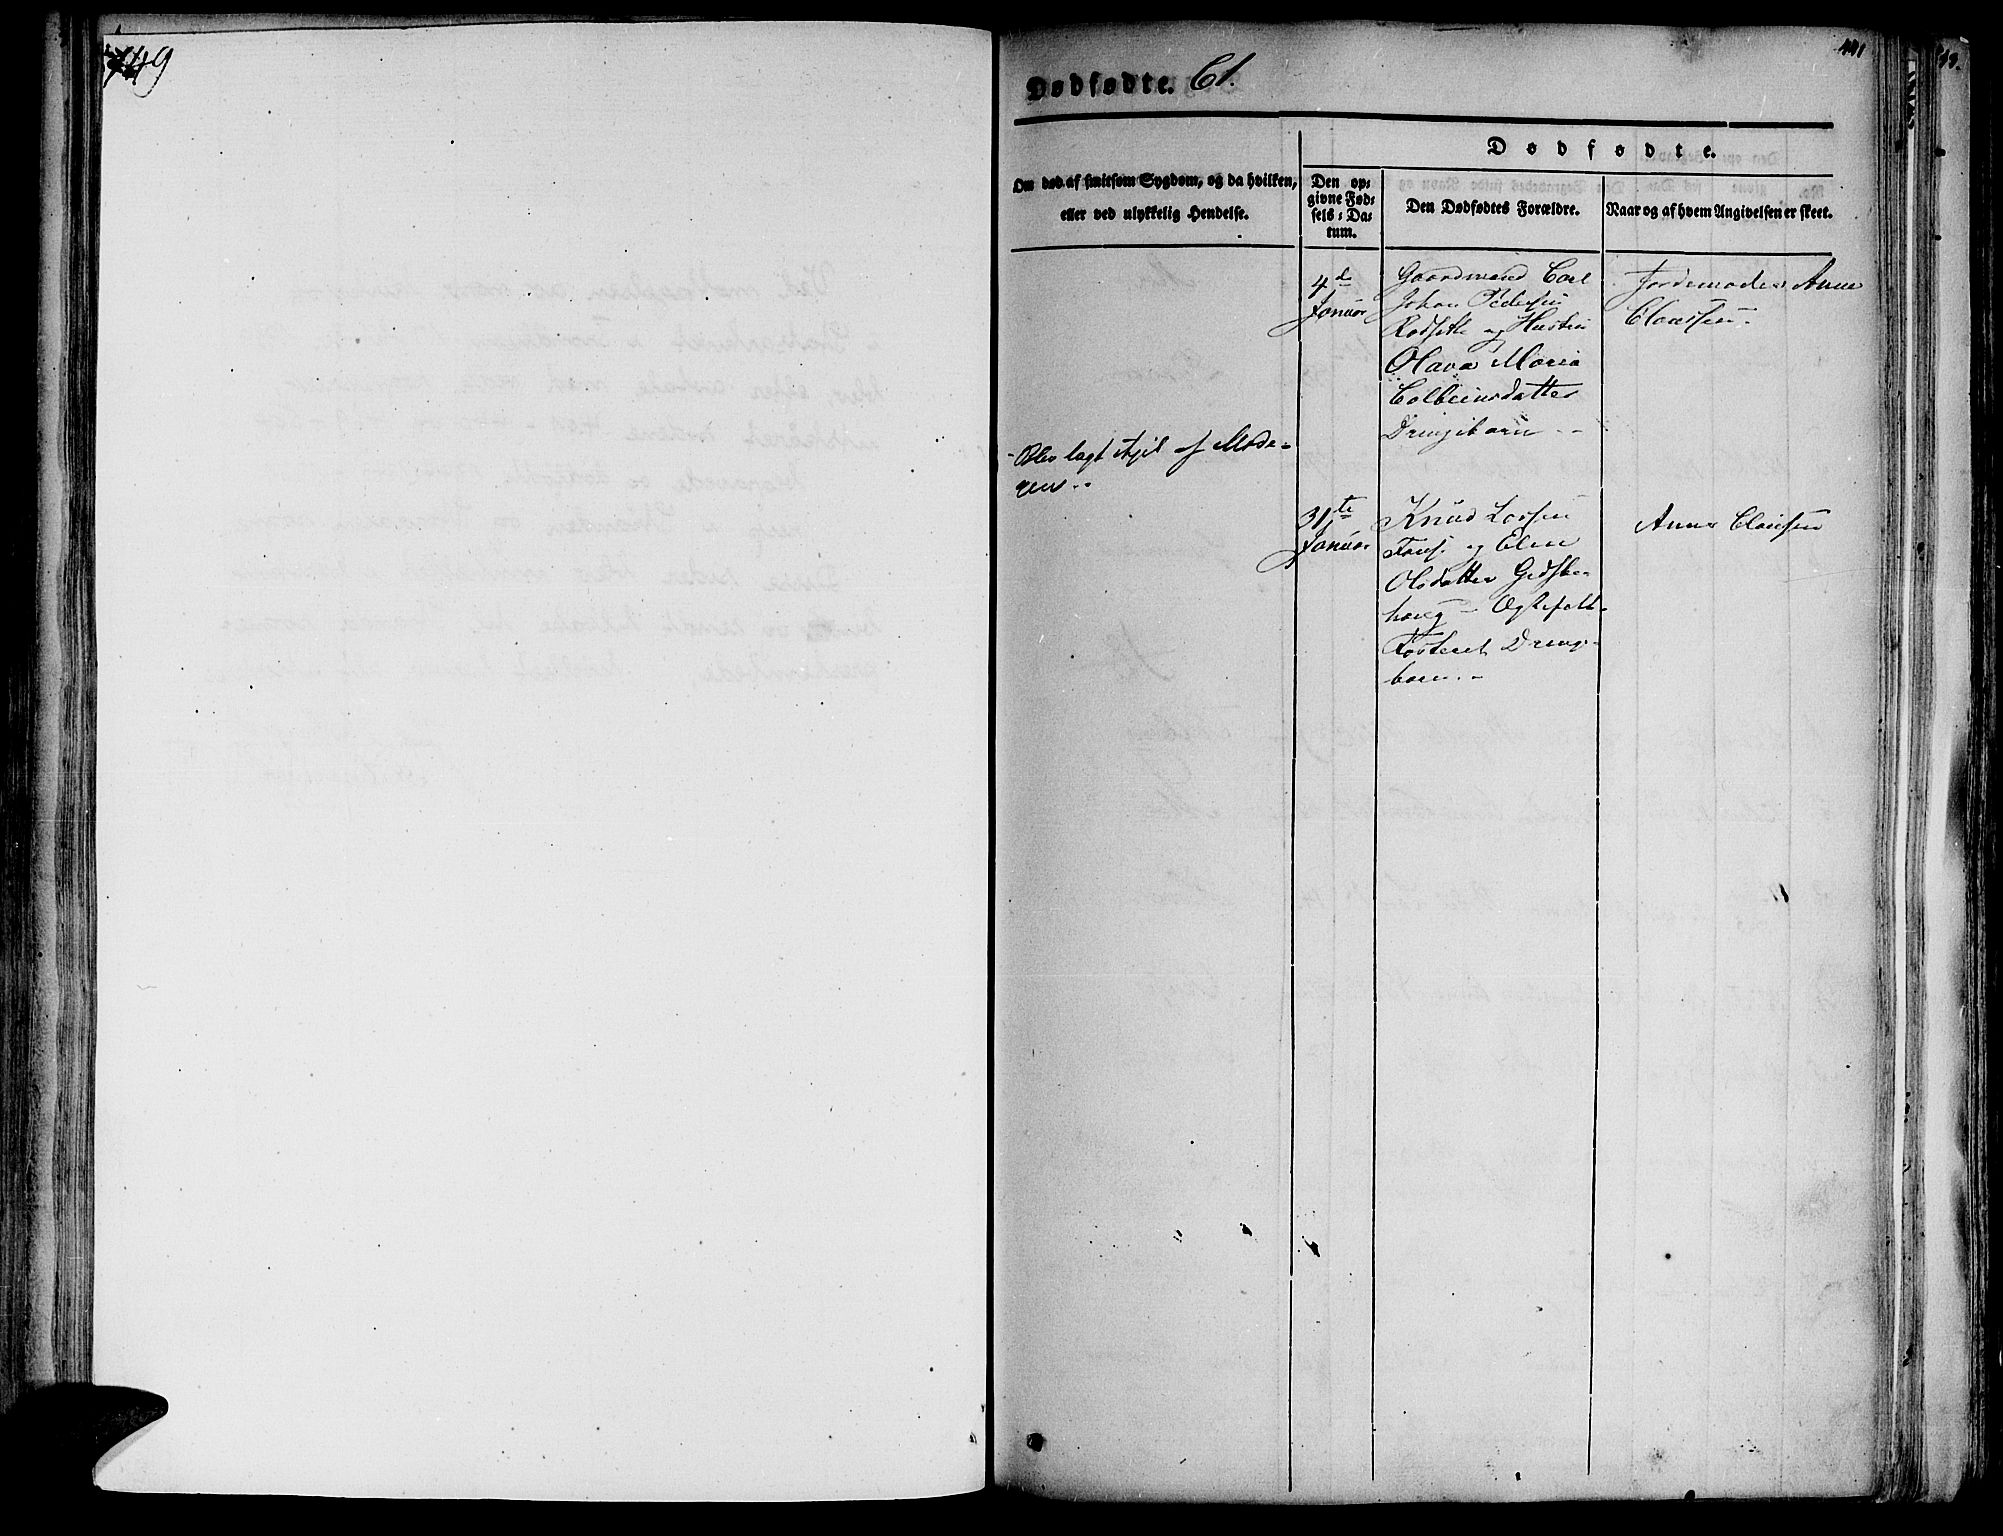 749
441
Dødfødte. 61.
Dødfødte.
Om død af smitsom Sygdom, og da hvilken,
eller ved ulykkelig Hendelse.
Den op-
givne Fød-
sels-Da-
tum.
Den Dødfødtes Forældre.
Naar og af hvem Angivelsen er skeet.
4d
Januar
Gaardmand Carl
Johan Pedersen
Rodsette og Hustru
Olava Maria
Colbeinsdatter
Drengebarn - -
Jordemoder Anne
Clausen.
- Blev lagt ihjel af Mode-
ren. -
31te
Januar
Knud Larsen
og Elen
Olsdatter Gidske-
houg - Ægtefolk -
Fosteret Dreng-
barn. -
Anne Clausen